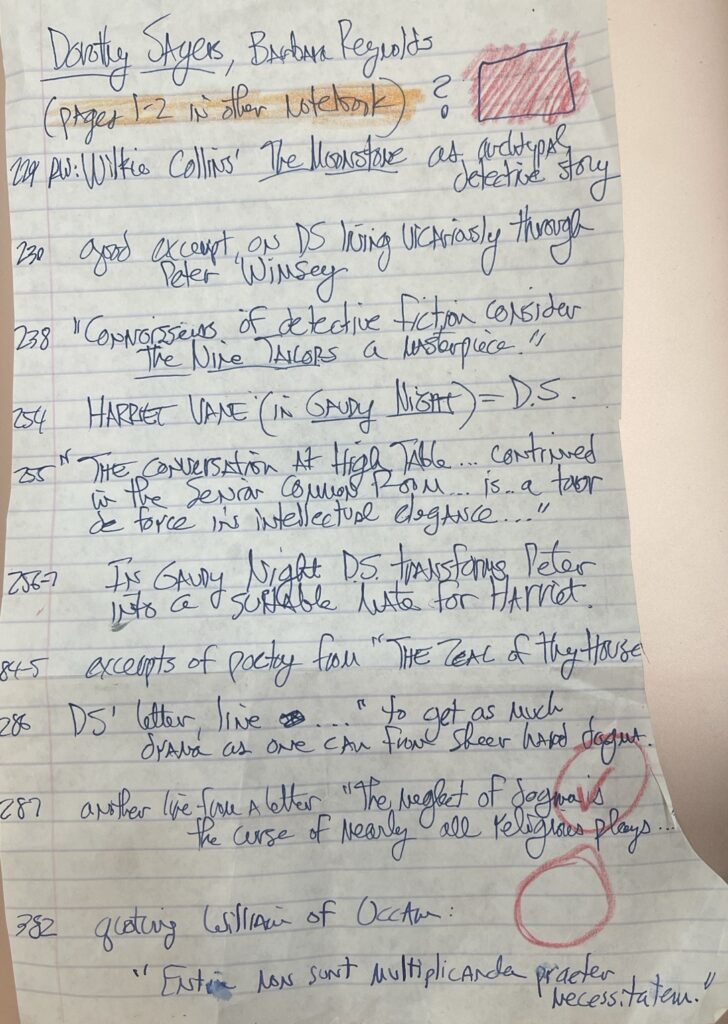 Dorothy Sayers, Barbara Reynolds
(pages 1-2 in other notebook) ?
229 RW: Wilkie Collins' The Moonstone as archtypal
detective story
230 good excerpt, on DS living vicariously through
Peter Wimsey
238 "Connoisseurs of detective fiction consider
The Nine Tailors a masterpiece."
254 HARRIET VANE (in GAUDY Night) = D.S.
255 "THE CONVERSATION At High Table... continued
in the Senior Common Room... is.. a tour
de force in intellectual elegance...."
256-7 In GAUDY Night D.S. transforms Peter
into a suitable mate for Harriet.
845 excerpts of poetry from "THE ZEAL of thy House
286 DS' letter, line ...." to get as much
drama as one can from sheer hard dogma.
287 another line from a letter "The neglect of dogma is
the curse of nearly all religious plays...
382 quoting William of Occam:
"Entia non sunt multiplicanda praeter
necessitatem."